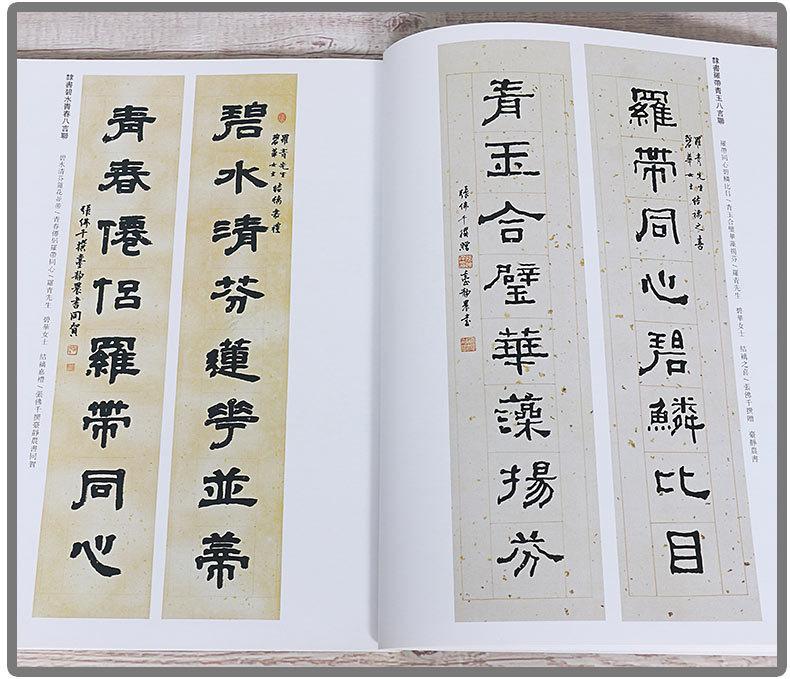 隸書羅帶青玉八言聯
羅帶同心碧鱗比目/青玉合璧華藻揚芬/羅青先生 碧華女士 結褵之喜/張佛千撰贈 臺靜農書
羅青先生
碧華女士結褵之喜
羅帶同心碧鱗比目
青玉合璧華藻揚芬
張佛千撰贈 臺靜農書
羅青先生
碧華女士結褵嘉禮
碧水清芬蓮花並蒂
青春僊侶羅帶同心
張佛千撰臺靜農書同賀
隸書碧水青春八言聯
碧水清芬蓮花並蒂/青春僊侶羅帶同心/羅青先生 碧華女士 結褵嘉禮/張佛千撰臺靜農書同賀